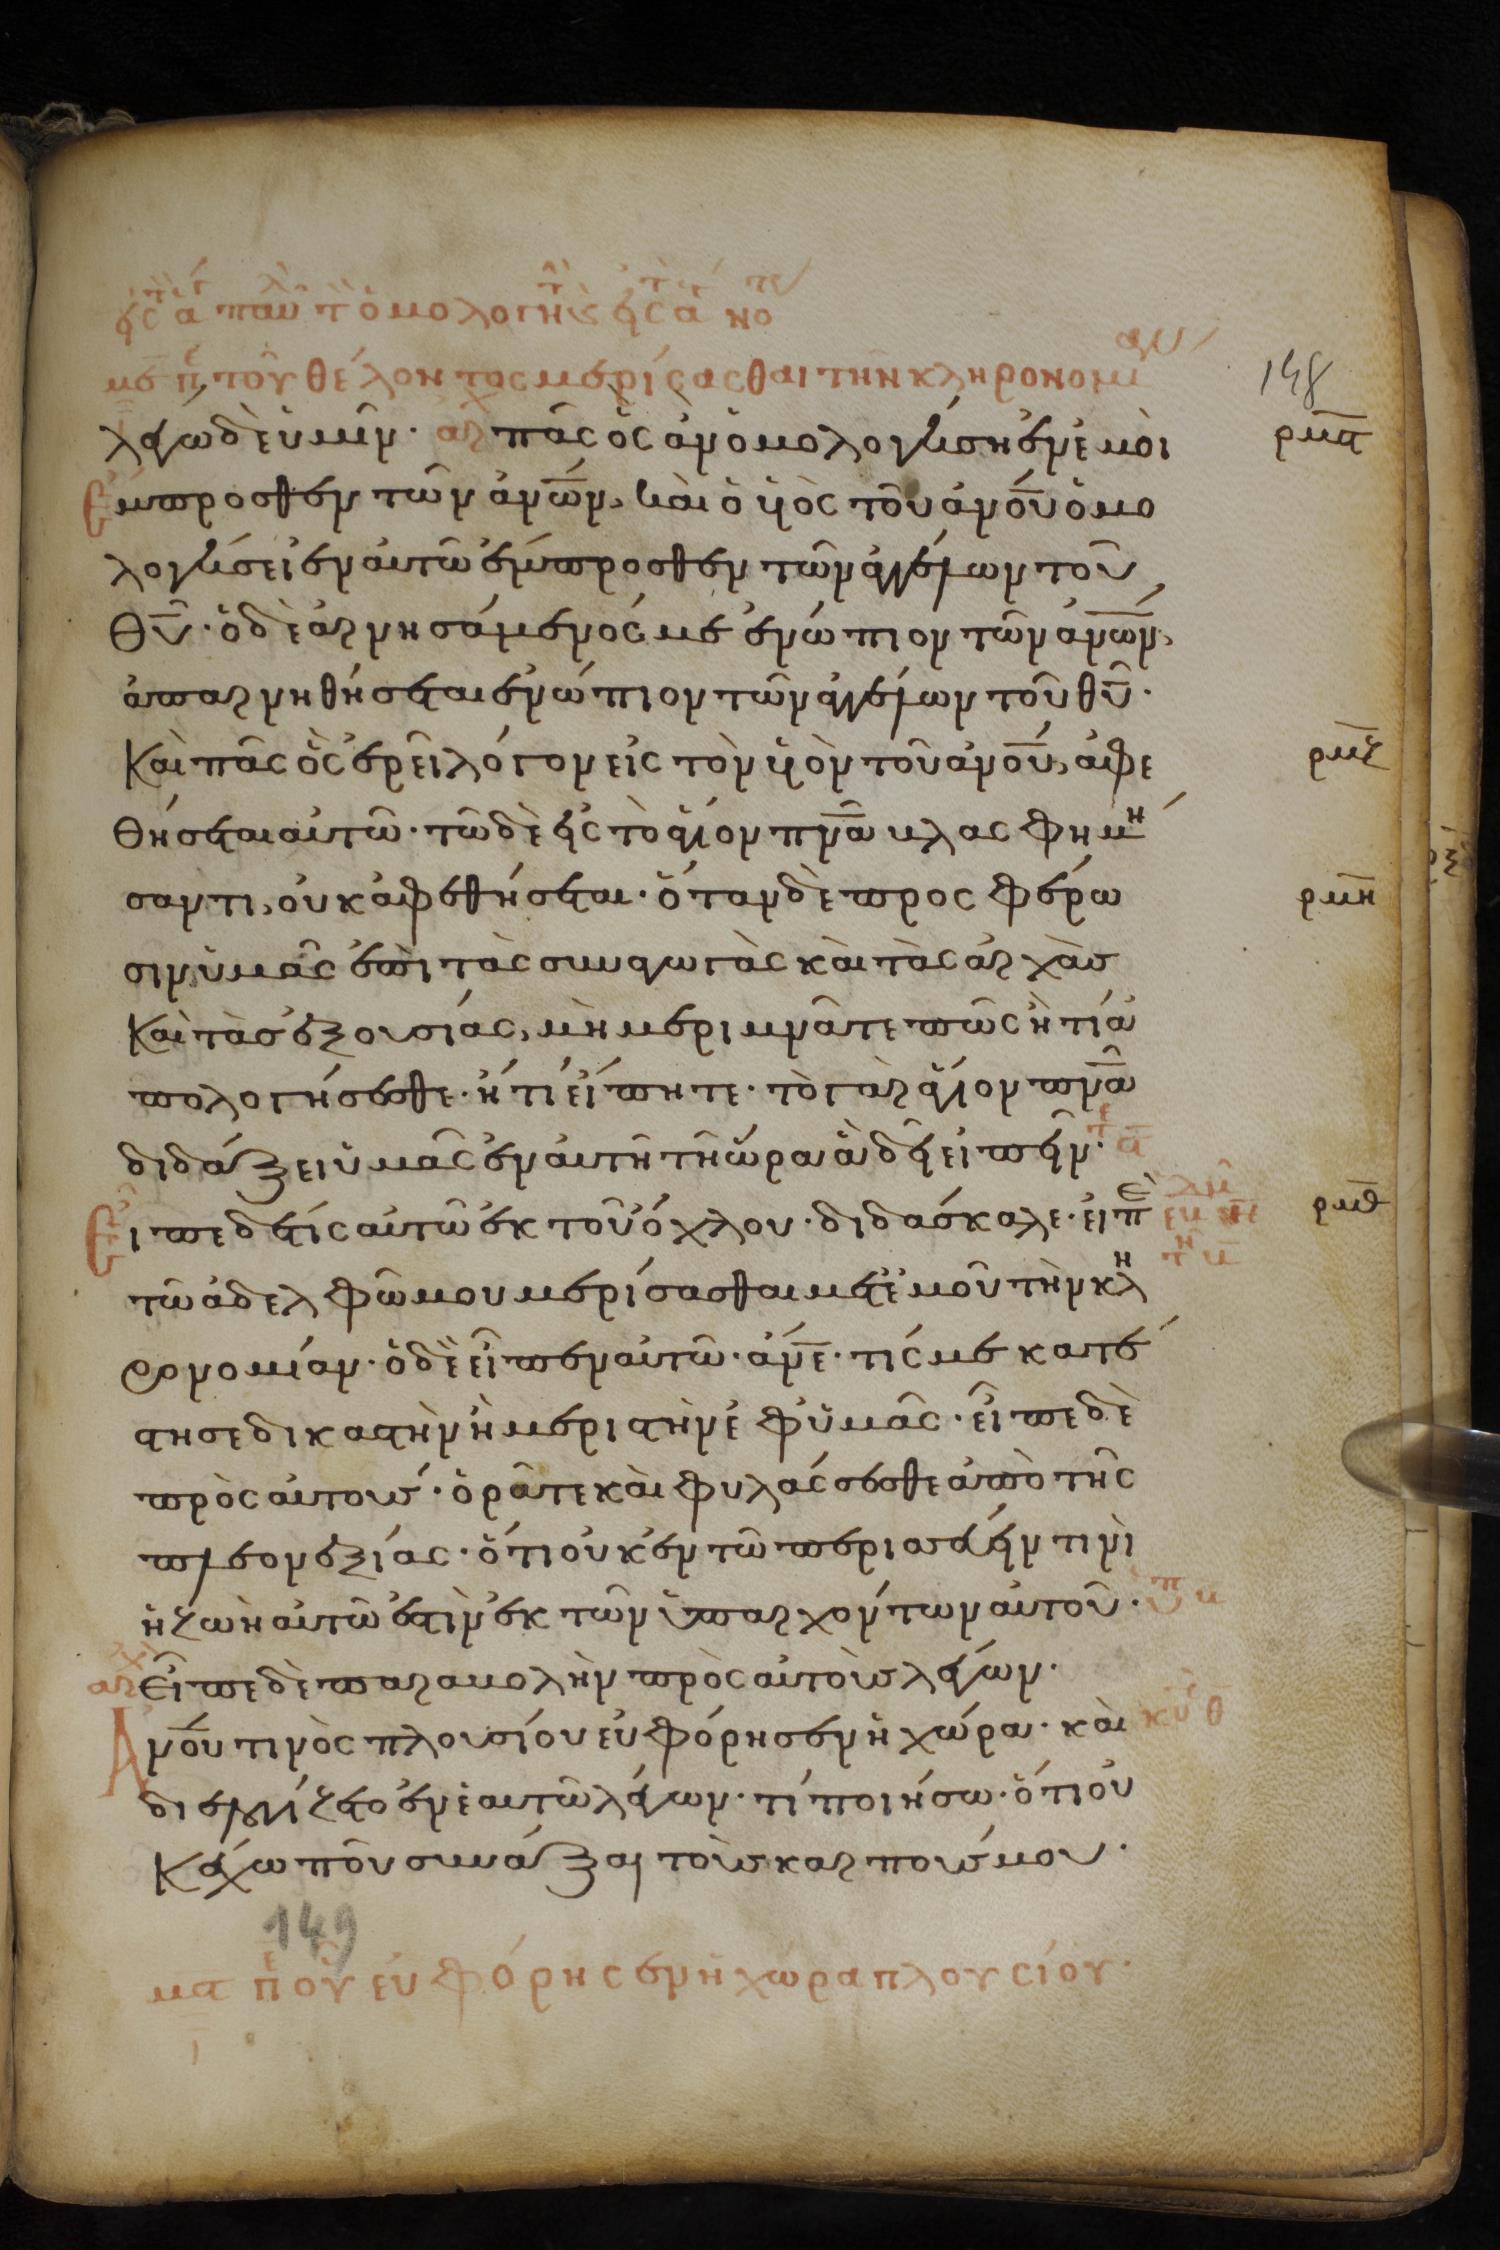 με πε τοῦ θέλοντος μερίσασθαι τὴν κληρονομι
148
λέγω δὲ ὑμῖν· αρχ πᾶς ὃς ἂν ὁμολογήση ἐν ἐμοὶ
ρμα
ἔμπροσθεν τῶν ἀν̅ω̅ν, καὶ ὁ υἱὸς τοῦ ἀν̅ο̅υ ὁμο
λογήσει ἐν αυτῶ ἔμπροσθεν τῶν ἀγγέλων τοῦ
θ̅υ̅· ὁ δὲ ἀρνησάμενός με ἐνώπιον τῶν ἀν̅ω̅ν,
ἀπαρνηθήσεται ἐνώπιον τῶν ἀγγέλων τοῦ θ̅υ̅·
Καὶ πᾶς ὃς ἐρεῖ λόγον εἰς τὸν υἱὸν τοῦ ἀν̅ο̅υ, ἀφε
ρμζ
θήσεται αυτῶ· τῶ δὲ εἰς τὸ ἅγιον πν̅α̅ βλασφημη
σαντι, οὐκ ἀφεθήσεται· ὅταν δὲ προσφέρω
ρμη
σιν ὑμᾶς ἐπὶ τὰς συναγωγὰς καὶ τὰς ἀρχὰς
Καὶ τὰς ἐξουσίας, μὴ μεριμνᾶτε πῶς ἢ τί ἀ
πολογήσεσθε· ἢ τί εἴπητε· τὸ γὰρ ἅγιον πν̅α̅
διδάξει ὑμᾶς ἐν αυτῆ τῆ ὥρα ἃ δεῖ εἰπεῖν·
Εἶπε δέ τίς αυτῶ ἐκ τοῦ ὄχλου· διδάσκαλε· εἰπὲ
ρμθ
τῶ ἀδελφῶ μου μερίσασθαι μετ ἐμοῦ τὴν κλη
ρονομίαν· ὁ δὲ εἶπεν αυτῶ· ἄν̅ε̅· τίς με κατέ
στησε δικαστὴν ἢ μεριστὴν ἐφ ὑμᾶς· εἶπε δὲ
πρὸς αυτούς· ὁρᾶτε καὶ φυλάσσεσθε ἀπὸ τῆς
πλεονεξίας· ὅτι οὐκ ἐν τῶ περισσεύειν τινὶ
ἡ ζωὴ αυτῶ ἐστὶν ἐκ τῶν ὑπαρχόντων αὐτοῦ·
αρχ Εἶπε δὲ παραβολὴν πρὸς αυτοὺς λέγων·
Ἀν̅ο̅υ τινὸς πλουσίου εὐφόρησεν ἡ χώρα· καὶ
διελογίζετο ἐν ἑαυτῶ λέγων· τί ποιήσω· ὅτι οὐ
Κ ἔχω ποῦ συνάξαι τοὺς καρπούς μου·
149
μα πε οὗ εὐφόρησεν ἡ χώρα πλουσίου·